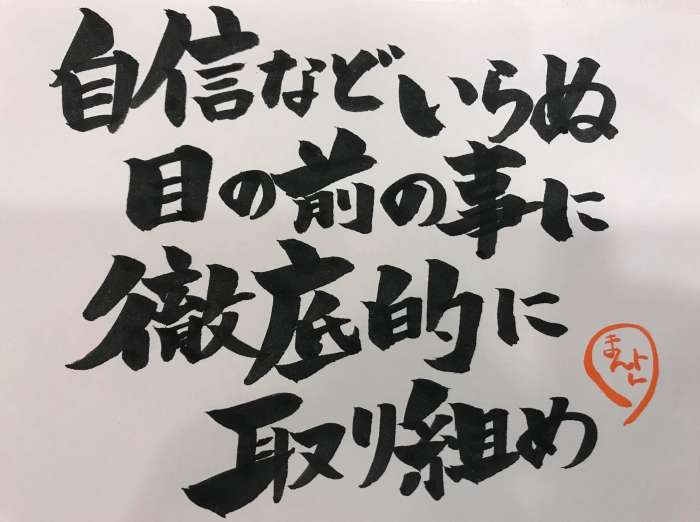 自信などいらぬ
目の前の事に
徹底的に
取り組め